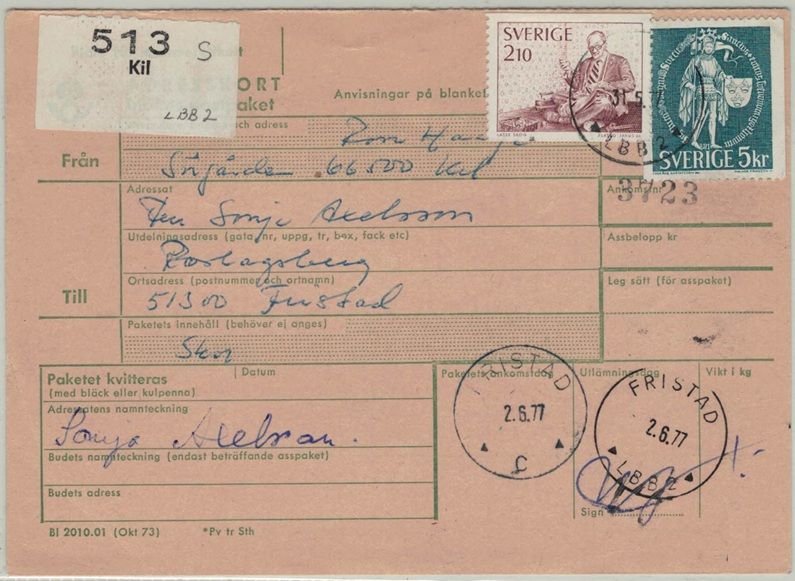 513 S
Kil
LBB2
ORT
paket
Anvisningar på blanket
SVERIGE
2.10
SVERIGE 5kr
31.5.77
LBB2
Från
och adress
Sörgården 66500 Kil
Ankomstnr
3723
Adressat
Sonja Axelsson
Utdelningsadress (gata, nr, uppg, tr, box, fack etc)
Assbelopp kr
Roslagsberg
Till
Ortsadress (postnummer och ortnamn)
Leg sätt (för asspaket)
51300 Fristad
Paketets innehåll (behöver ej anges)
Skor
Paketet kvitteras
(med bläck eller kulpenna)
Datum
Paketets ankomstdag
Utlämningsdag
Vikt i kg
RISTAD
2.6.77
C
FRISTAD
2.6.77
LBB2
Adressatens namnteckning
Sonja Axelsson.
Budets namnteckning (endast beträffande asspaket)
Budets adress
Sign
Bl 2010.01 (Okt 73) *Pv tr Sth